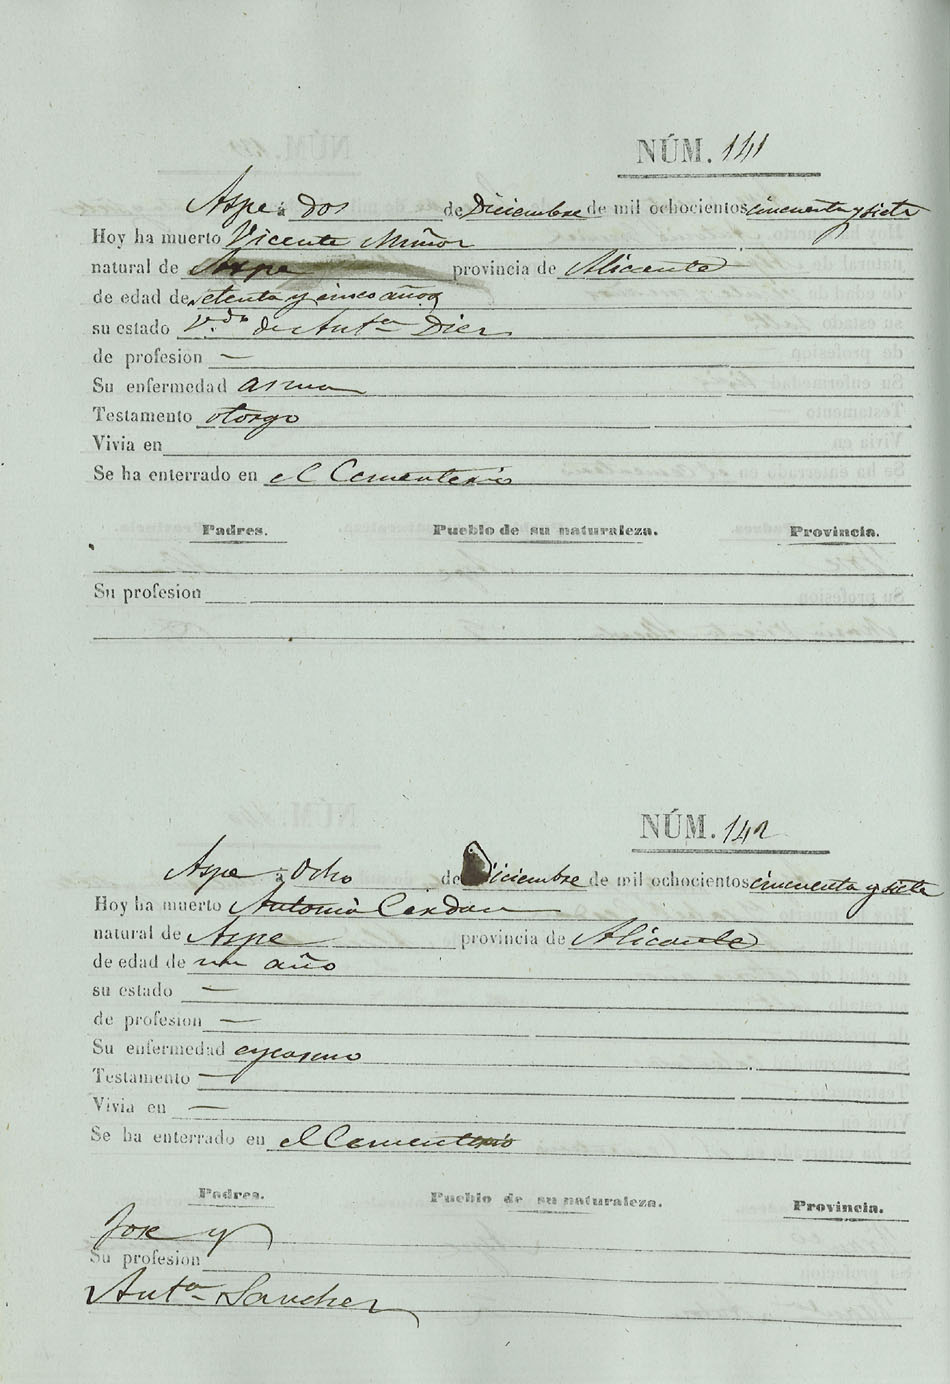 NÚM. 141
Aspe á dos de Diciembre de mil ochocientos cincuenta y siete
Hoy ha muerto Vicente Muñoz
natural de Aspe provincia de Alicante
de edad de setenta y cinco años
su estado V.do de Ant.a Diez
de profesion —
Su enfermedad asma
Testamento otorgo
Vivia en
Se ha enterrado en el Cementerio
Padres. Pueblo de su naturaleza. Provincia.
Su profesion
NÚM. 142
Aspe á Ocho de Diciembre de mil ochocientos cincuenta y siete
Hoy ha muerto Antonio Cerdan
natural de Aspe provincia de Alicante
de edad de un año
su estado —
de profesion —
Su enfermedad
Testamento —
Vivia en —
Se ha enterrado en el Cementerio
Padres. Pueblo de su naturaleza. Provincia.
Jose y
Su profesion
Ant.a Sanchez